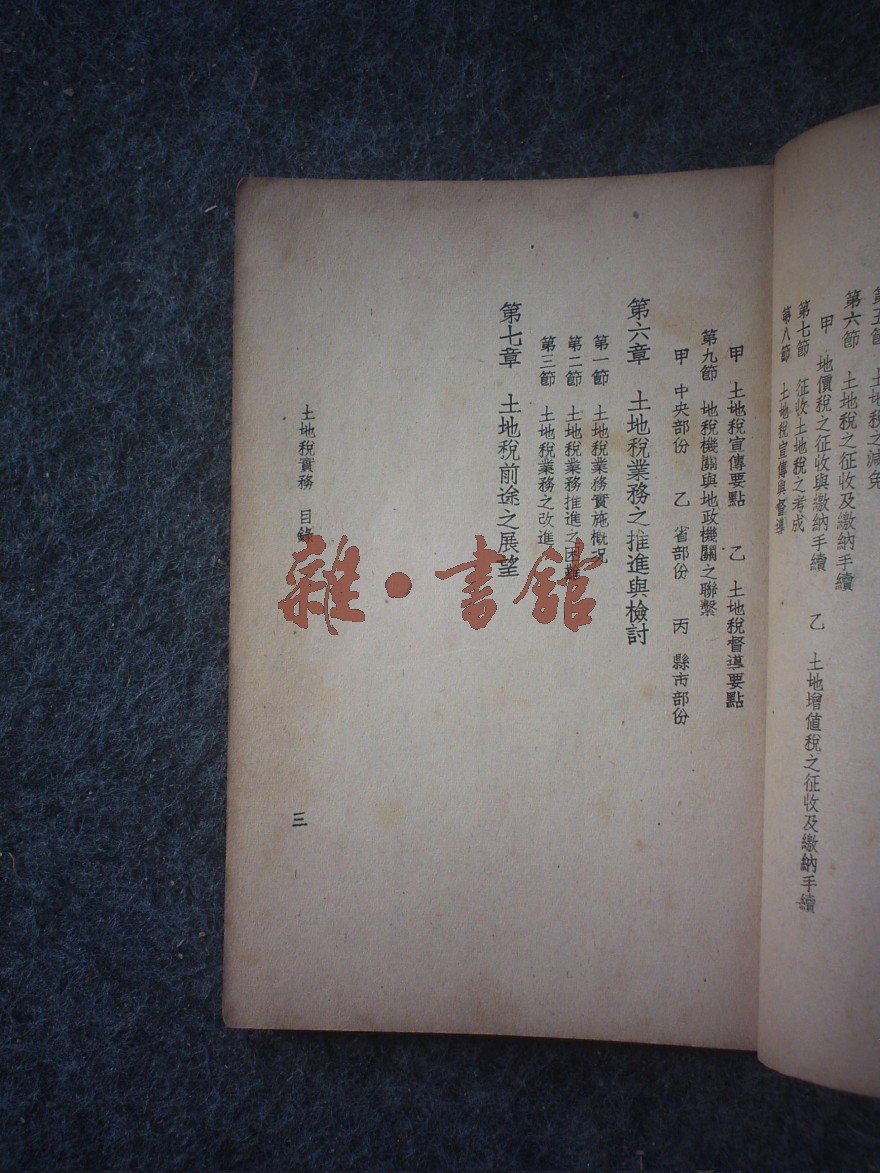 第五節　土地稅之減免
第六節　土地稅之征收及繳納手續
甲　地價稅之征收與繳納手續　乙　土地增值稅之征收及繳納手續
第七節　征收土地稅之考成
第八節　土地稅宣傳與督導
甲　土地稅宣傳要點　乙　土地稅督導要點
第九節　地稅機關與地政機關之聯繫
甲　中央部份　乙　省部份　丙　縣市部份
第六章　土地稅業務之推進與檢討
第一節　土地稅業務實施概況
第二節　土地稅業務推進之困難
第三節　土地稅業務之改進
第七章　土地稅前途之展望
土地稅實務　目錄
三
雜·書館